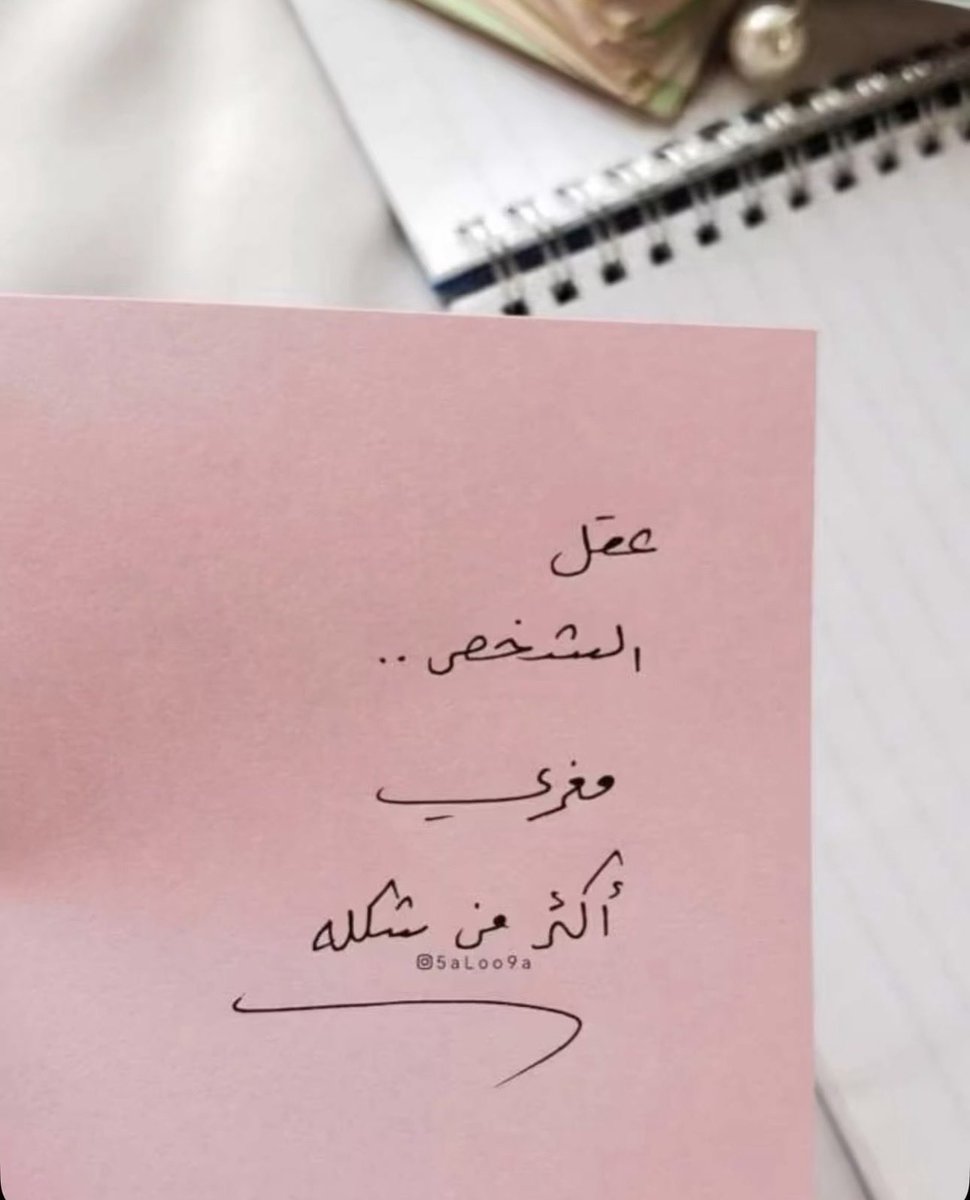 عقل
الشخص ..
مغري
أكثر من شكله
@5aLoo9a